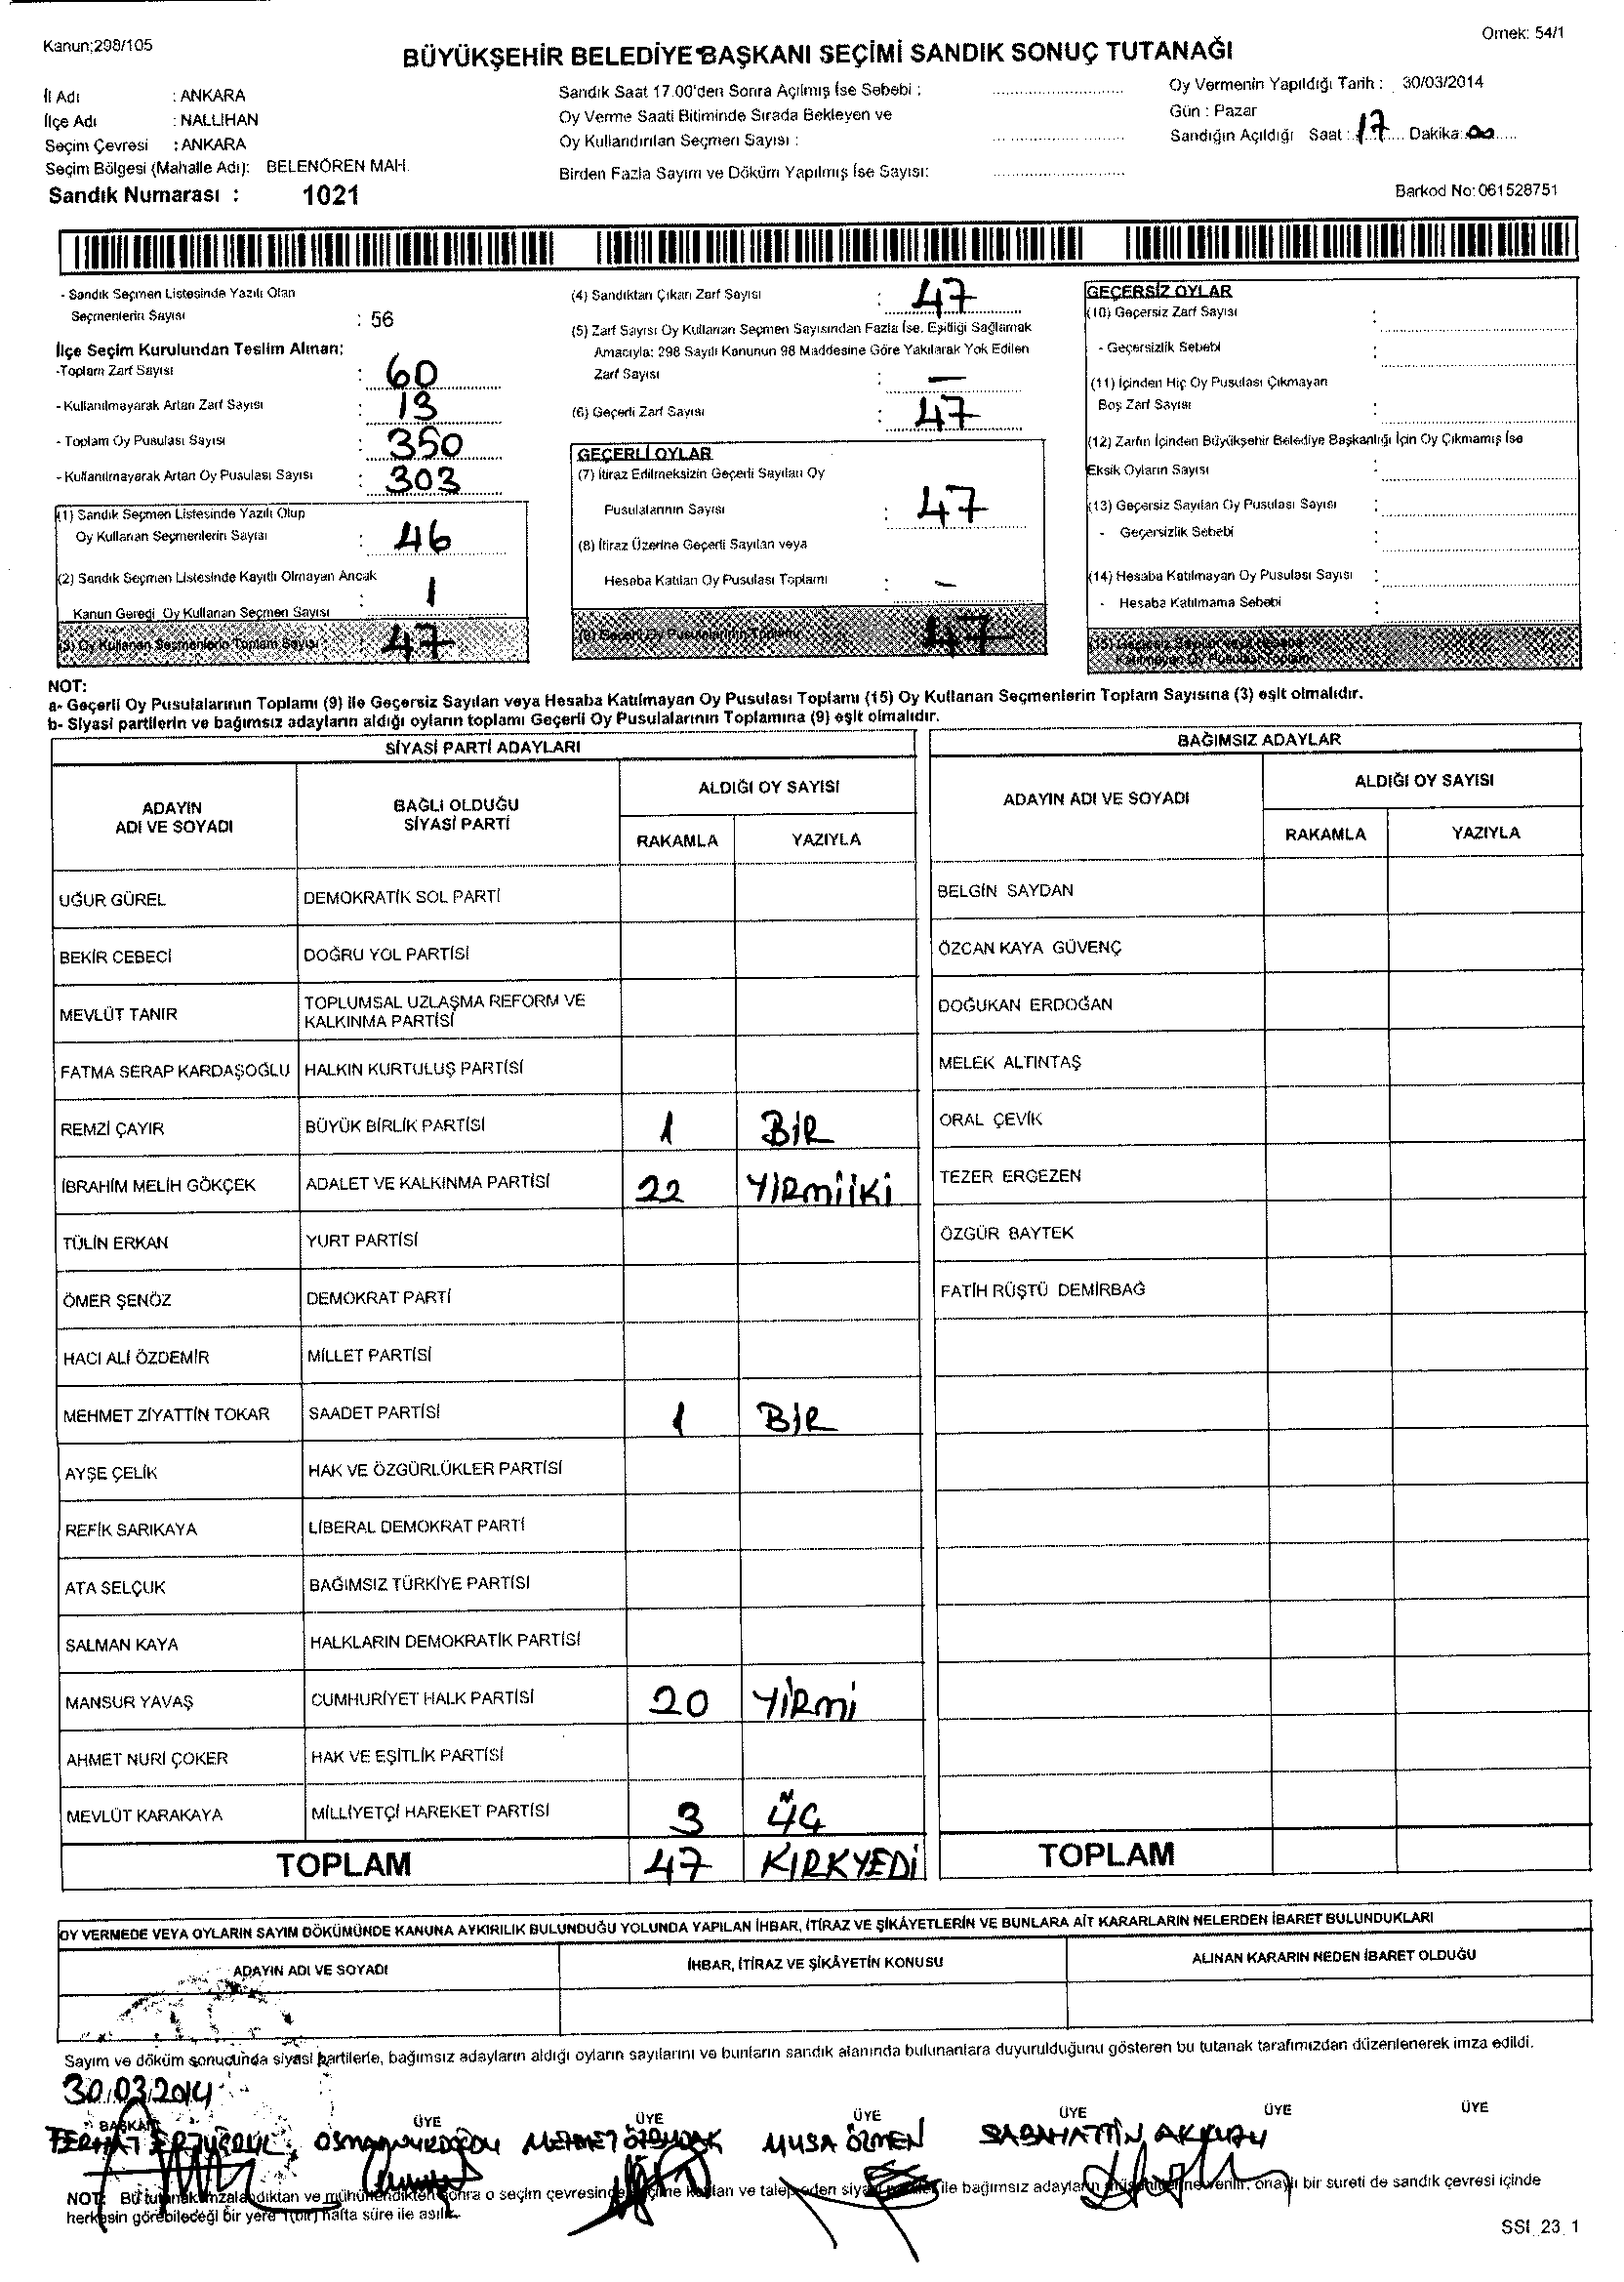 Kanun;298/105
Örnek: 54/1
BÜYÜKŞEHİR BELEDİYE BAŞKANI SEÇİMİ SANDIK SONUÇ TUTANAĞI
İl Adı : ANKARA
İlçe Adı : NALLIHAN
Seçim Çevresi : ANKARA
Seçim Bölgesi (Mahalle Adı): BELENÖREN MAH.
Sandık Numarası : 1021
Sandık Saat 17.00'den Sonra Açılmış İse Sebebi :
Oy Verme Saati Bitiminde Sırada Bekleyen ve
Oy Kullandırılan Seçmen Sayısı :
Birden Fazla Sayım ve Döküm Yapılmış İse Sayısı:
Oy Vermenin Yapıldığı Tarih : 30/03/2014
Gün : Pazar
Sandığın Açıldığı Saat : 17 Dakika: 00
Barkod No: 061528751
- Sandık Seçmen Listesinde Yazılı Olan
Seçmenlerin Sayısı : 56
İlçe Seçim Kurulundan Teslim Alınan:
-Toplam Zarf Sayısı : 60
- Kullanılmayarak Artan Zarf Sayısı : 13
- Toplam Oy Pusulası Sayısı : 350
- Kullanılmayarak Artan Oy Pusulası Sayısı : 303
(1) Sandık Seçmen Listesinde Yazılı Olup
Oy Kullanan Seçmenlerin Sayısı : 46
(2) Sandık Seçmen Listesinde Kayıtlı Olmayan Ancak
Kanun Gereği Oy Kullanan Seçmen Sayısı : 1
(3) Oy Kullanan Seçmenlerin Toplam Sayısı : 47
(4) Sandıktan Çıkan Zarf Sayısı : 47
(5) Zarf Sayısı Oy Kullanan Seçmen Sayısından Fazla İse, Eşitliği Sağlamak
Amacıyla: 298 Sayılı Kanunun 98 Maddesine Göre Yakılarak Yok Edilen
Zarf Sayısı : —
(6) Geçerli Zarf Sayısı : 47
GEÇERLİ OYLAR
(7) İtiraz Edilmeksizin Geçerli Sayılan Oy
Pusulalarının Sayısı : 47
(8) İtiraz Üzerine Geçerli Sayılan veya
Hesaba Katılan Oy Pusulası Toplamı : —
(9) Geçerli Oy Pusulalarının Toplamı 47
GEÇERSİZ OYLAR
(10) Geçersiz Zarf Sayısı :
- Geçersizlik Sebebi :
(11) İçinden Hiç Oy Pusulası Çıkmayan
Boş Zarf Sayısı :
(12) Zarfın İçinden Büyükşehir Belediye Başkanlığı İçin Oy Çıkmamış İse
Eksik Oyların Sayısı :
(13) Geçersiz Sayılan Oy Pusulası Sayısı :
- Geçersizlik Sebebi :
(14) Hesaba Katılmayan Oy Pusulası Sayısı :
- Hesaba Katılmama Sebebi :
(15) Geçersiz Sayılan veya Hesaba
Katılmayan Oy Pusulası Toplamı
NOT:
a- Geçerli Oy Pusulalarının Toplamı (9) ile Geçersiz Sayılan veya Hesaba Katılmayan Oy Pusulası Toplamı (15) Oy Kullanan Seçmenlerin Toplam Sayısına (3) eşit olmalıdır.
b- Siyasi partilerin ve bağımsız adayların aldığı oyların toplamı Geçerli Oy Pusulalarının Toplamına (9) eşit olmalıdır.
SİYASİ PARTİ ADAYLARI
ADAYIN ADI VE SOYADI
BAĞLI OLDUĞU SİYASİ PARTİ
ALDIĞI OY SAYISI
RAKAMLA YAZIYLA
UĞUR GÜREL DEMOKRATİK SOL PARTİ
BEKİR CEBECİ DOĞRU YOL PARTİSİ
MEVLÜT TANIR TOPLUMSAL UZLAŞMA REFORM VE
KALKINMA PARTİSİ
FATMA SERAP KARDAŞOĞLU HALKIN KURTULUŞ PARTİSİ
REMZİ ÇAYIR BÜYÜK BİRLİK PARTİSİ 1 BİR
İBRAHİM MELİH GÖKÇEK ADALET VE KALKINMA PARTİSİ 22 YİRMİİKİ
TÜLİN ERKAN YURT PARTİSİ
ÖMER ŞENÖZ DEMOKRAT PARTİ
HACI ALİ ÖZDEMİR MİLLET PARTİSİ
MEHMET ZİYATTİN TOKAR SAADET PARTİSİ 1 BİR
AYŞE ÇELİK HAK VE ÖZGÜRLÜKLER PARTİSİ
REFİK SARIKAYA LİBERAL DEMOKRAT PARTİ
ATA SELÇUK BAĞIMSIZ TÜRKİYE PARTİSİ
SALMAN KAYA HALKLARIN DEMOKRATİK PARTİSİ
MANSUR YAVAŞ CUMHURİYET HALK PARTİSİ 20 YİRMİ
AHMET NURİ ÇOKER HAK VE EŞİTLİK PARTİSİ
MEVLÜT KARAKAYA MİLLİYETÇİ HAREKET PARTİSİ 3 ÜÇ
TOPLAM 47 KIRKYEDİ
BAĞIMSIZ ADAYLAR
ADAYIN ADI VE SOYADI
ALDIĞI OY SAYISI
RAKAMLA YAZIYLA
BELGİN SAYDAN
ÖZCAN KAYA GÜVENÇ
DOĞUKAN ERDOĞAN
MELEK ALTINTAŞ
ORAL ÇEVİK
TEZER ERGEZEN
ÖZGÜR BAYTEK
FATİH RÜŞTÜ DEMİRBAĞ
TOPLAM
OY VERMEDE VEYA OYLARIN SAYIM DÖKÜMÜNDE KANUNA AYKIRILIK BULUNDUĞU YOLUNDA YAPILAN İHBAR, İTİRAZ VE ŞİKÂYETLERİN VE BUNLARA AİT KARARLARIN NELERDEN İBARET BULUNDUKLARI
ADAYIN ADI VE SOYADI
İHBAR, İTİRAZ VE ŞİKÂYETİN KONUSU
ALINAN KARARIN NEDEN İBARET OLDUĞU
Sayım ve döküm sonucunda siyasi partilerle, bağımsız adayların aldığı oyların sayılarını ve bunların sandık alanında bulunanlara duyurulduğunu gösteren bu tutanak tarafımızdan düzenlenerek imza edildi.
30.03.2014
BAŞKAN ÜYE ÜYE ÜYE ÜYE ÜYE ÜYE
FERHAT OSMAN MEHMET MUSA ÖZMEN SABAHATTİN
NOT: Bu tutanak imzalandıktan ve mühürlendikten sonra o seçim çevresinde seçime katılan ve talep eden siyasi partiler ile bağımsız adayların müşahitlerine verilir, onaylı bir sureti de sandık çevresi içinde
herkesin görebileceği bir yere 1(bir) hafta süre ile asılır.
SSI_23_1